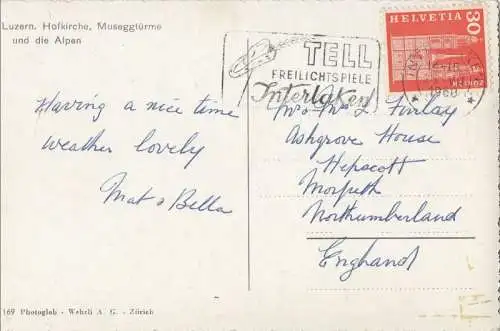 Luzern. Hofkirche, Museggtürme
und die Alpen
TELL
FREILICHTSPIELE
Interlaken
HELVETIA
30
1960
Having a nice time
weather lovely
Mat & Bella
Mr & Mrs Finlay
Ashgrove House
Hepscott
Morpeth
Northumberland
England
169 Photoglob - Wehrli A. G. - Zürich